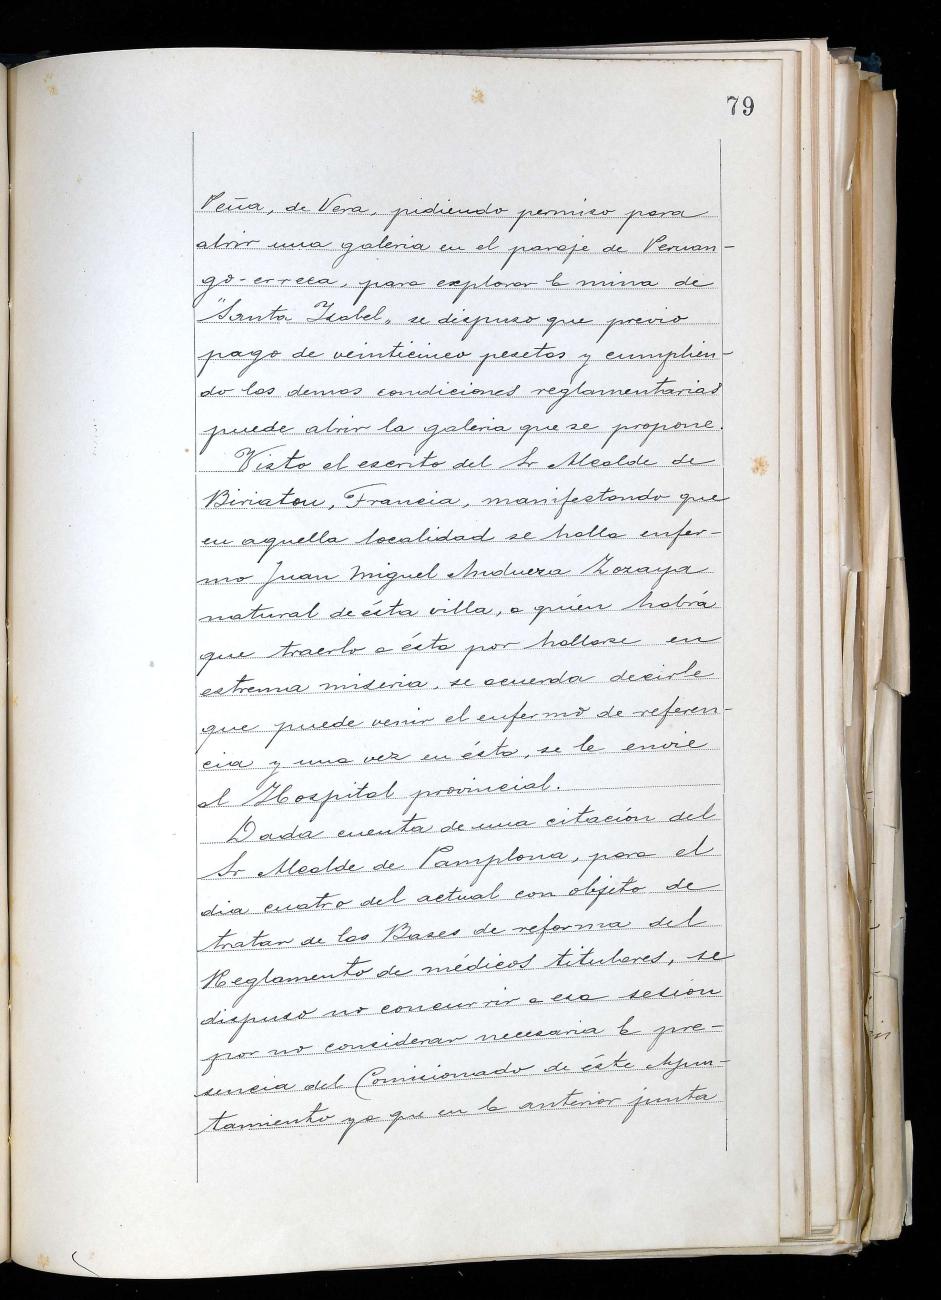 79
Peña, de Vera, pidiendo permiso para
abrir una galeria en el paraje de Peruan-
go-erreca, para explorar la mina de
"Santa Ysabel", se dispuso que previo
pago de veinticinco pesetas y cumplien-
do las demas condiciones reglamentarias
puede abrir la galeria que se propone.
Visto el escrito del Sr Alcalde de
Biriatou, Francia, manifestando que
en aquella localidad se halla enfer-
mo Juan Miguel Andueza Zozaya
natural de ésta villa, a quien habrá
que traerlo a ésta por hallarse en
estrema miseria, se acuerda decirle
que puede venir el enfermo de referen-
cia y una vez en ésta, se le envie
al Hospital provincial.
Dada cuenta de una citación del
Sr Alcalde de Pamplona, para el
dia cuatro del actual con objeto de
tratar de las Bases de reforma del
Reglamento de médicos titulares, se
dispuso no concurrir a esa sesión
por no considerar necesaria la pre-
sencia del Comisionado de éste Ayun-
tamiento ya que en la anterior junta